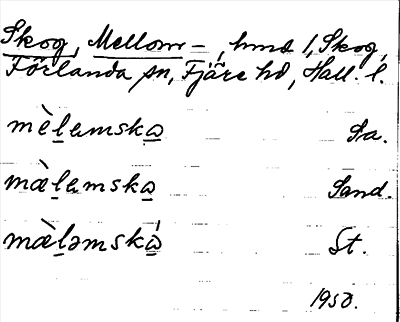 Skog, Mellom-, hmd 1, Skog,
Förlanda sn, Fjäre hd, Hall. l.
mèḻamska̱ Sa.
mæ̀ḻamska̱ Sand.
mæ̀ḻəmská̱ St.
1950.